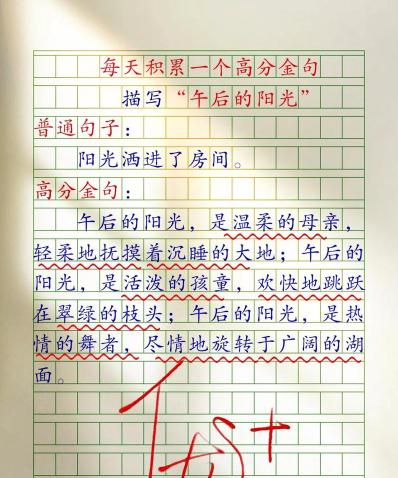 每天积累一个高分金句
描写“午后的阳光”
普通句子:
阳光洒进了房间。
高分金句:
午后的阳光,是温柔的母亲,
轻柔地抚摸着沉睡的大地;午后的
阳光,是活泼的孩童,欢快地跳跃
在翠绿的枝头;午后的阳光,是热
情的舞者,尽情地旋转于广阔的湖
面。